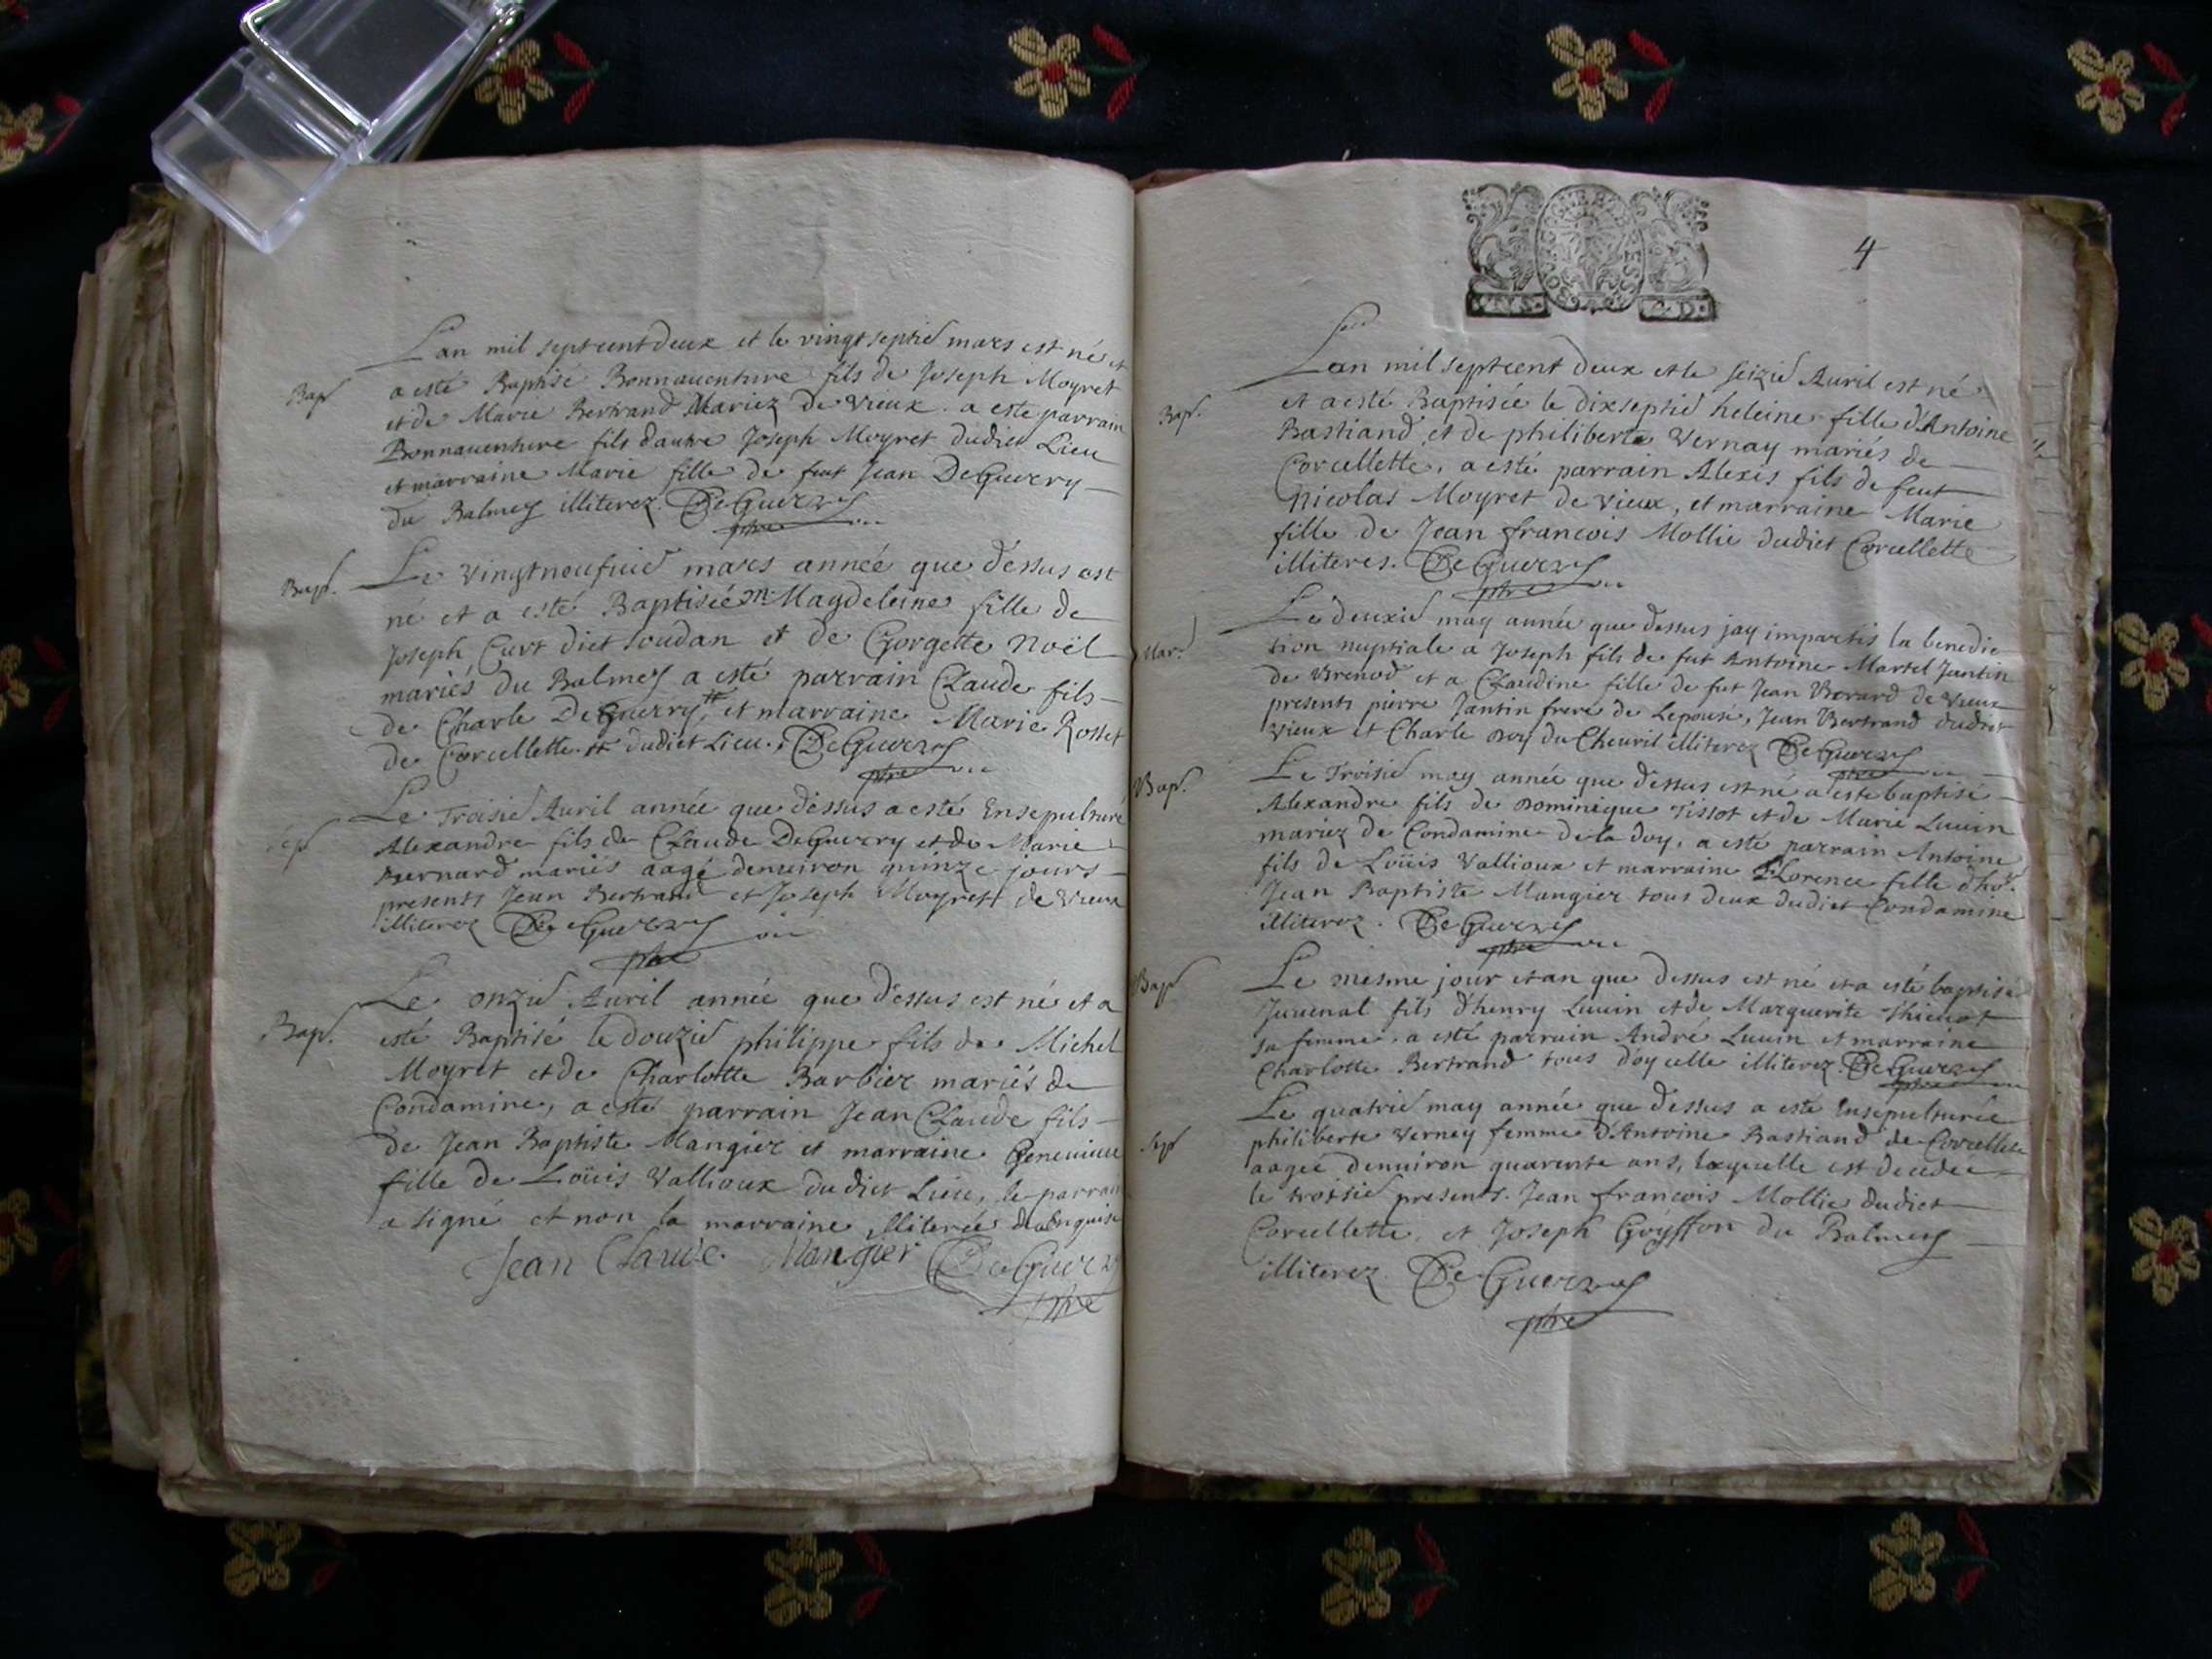 Bap
Lan mil septcent deux et le vingt septie mars est né et
a esté Baptisé Bonnauenture fils de Joseph Moyret
et de Marie Bertrand Mariez de vieux. a este parrain
Bonnauenture fils dautre Joseph Moyret dudict Lieu
et marraine Marie fille de feut Jean DeGuerry
du Balmey illiterez. DeGuerry
ptre
Bap.
Le vingtneufuie mars année que dessus est
né et a esté Baptisée Magdeleine fille de
Joseph Curt dict soudan et de Gorgette Noël
mariés du Balmey a esté parrain Claude fils
de Charle DeGuerry, et marraine Marie Rosset
de Corcellette. dudict Lieu. DeGuerry
ptre
Sep
Le Troisie Auril année que dessus a esté Ensepulturé
Alexandre fils de Claude DeGuerry et de Marie
Bernard mariés aagé denuiron quinze jours
presents Jean Bertrand et Joseph Moyret de vieux
illiterez DeGuerry
ptre
Bap.
Le onzie Auril année que dessus est né et a
esté Baptisé le douzie philippe fils de Michel
Moyret et de Charlotte Barbier mariés de
Condamine, a esté parrain Jean Claude fils
de Jean Baptiste Mangier et marraine Geneuieue
fille de Loüis Vallioux dudict Lieu, le parrain
a signé et non la marraine illiterée de enquise
Jean Claude Mangier DeGuerry
ptre
4
Bap.
Lan mil septcent deux et le seizie Auril est né
et a esté Baptisée le dixseptie heleine fille d'Antoine
Bastiand et de philiberte Vernay mariés de
Corcellette, a esté parrain Alexis fils de feut
Nicolas Moyret de vieux, et marraine Marie
fille de Jean francois Mollie dudict Corcellette
illiteres. DeGuerry
ptre
Mar.
Le deuxie may année que dessus jay impartis la benedic
tion nuptiale a Joseph fils de fut Antoine Martel Jantin
de Brenod et a Claudine fille de fut Jean Berard de vieux
presents pierre Jantin frere de Lepousé, Jean Bertrand dudict
vieux et Charle Roy du Cheuril illiterez DeGuerry
ptre
Bap.
Le Troisie may année que dessus est né a esté baptisé
Alexandre fils de Dominique Tissot et de Marie Luuin
mariez de Condamine de la doy, a esté parrain Antoine
fils de Loüis Vallioux et marraine Florence fille d'ho.
Jean Baptiste Mangier tous deux dudict Condamine
illiterez. DeGuerry
ptre
Bap
Le mesme jour et an que dessus est né et a esté baptisé
Juuenal fils d'henry Luuin et de Marguerite Thienot
sa femme, a esté parrain André Luuin et marraine
Charlotte Bertrand tous d'oycelle illiterez. DeGuerry
ptre
Sep
Le quatrie may année que dessus a esté Ensepulturée
philiberte Verney femme d'Antoine Bastiand de Corcellette
aagée denuiron quarente ans, laquelle est decedée
le troisie presents. Jean francois Mollie dudict
Corcellette, et Joseph Goyffon du Balmey
illiterez. DeGuerry
ptre